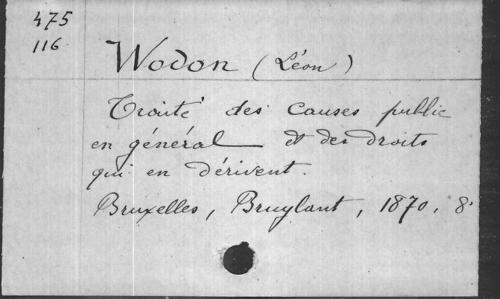 475
116
Wodon (Léon)
Traité des causes public
en général et des droits
qui en dérivent.
Bruxelles, Bruylant, 1870, 8°